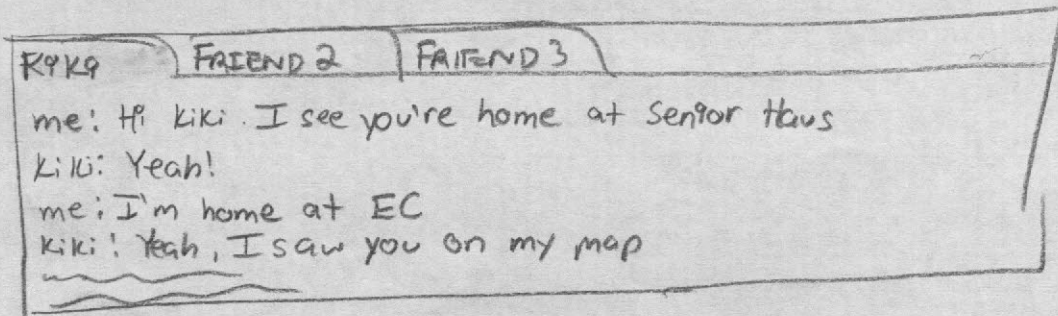 KiKi FRIEND 2 FRIEND 3
me: Hi Kiki. I see you're home at Senior Haus
Kiki: Yeah!
me: I'm home at EC
Kiki: Yeah, I saw you on my map